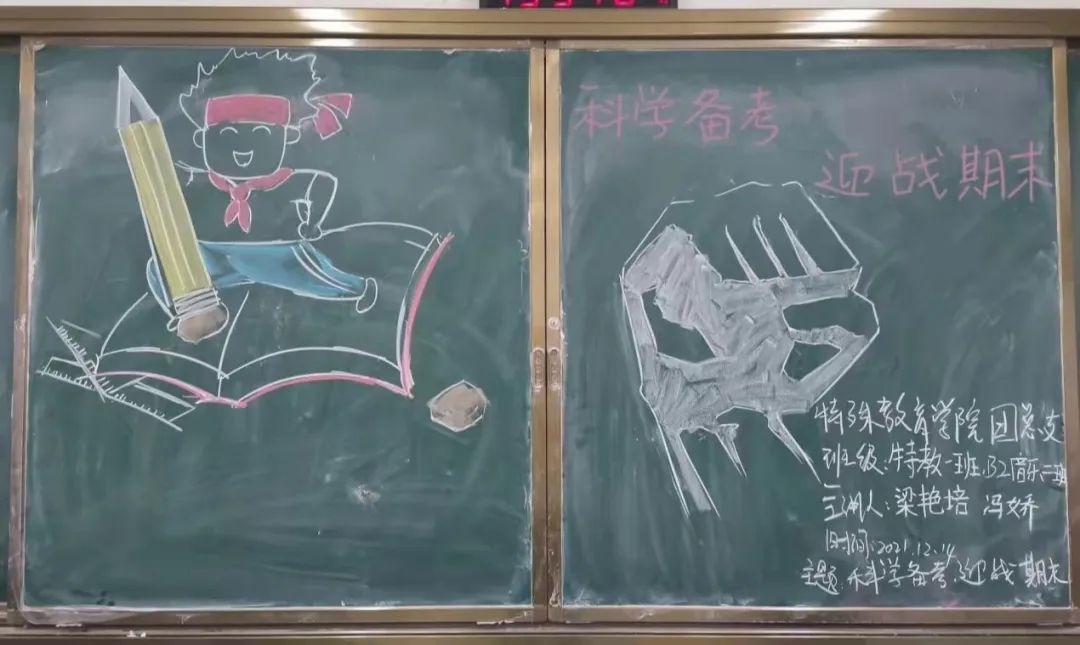 科学备考
迎战期末
特殊教育学院团总支
班级:特教一班.32音乐一班
主讲人:梁艳培 冯娇
时间:2021.12.14
主题:科学备考.迎战期末